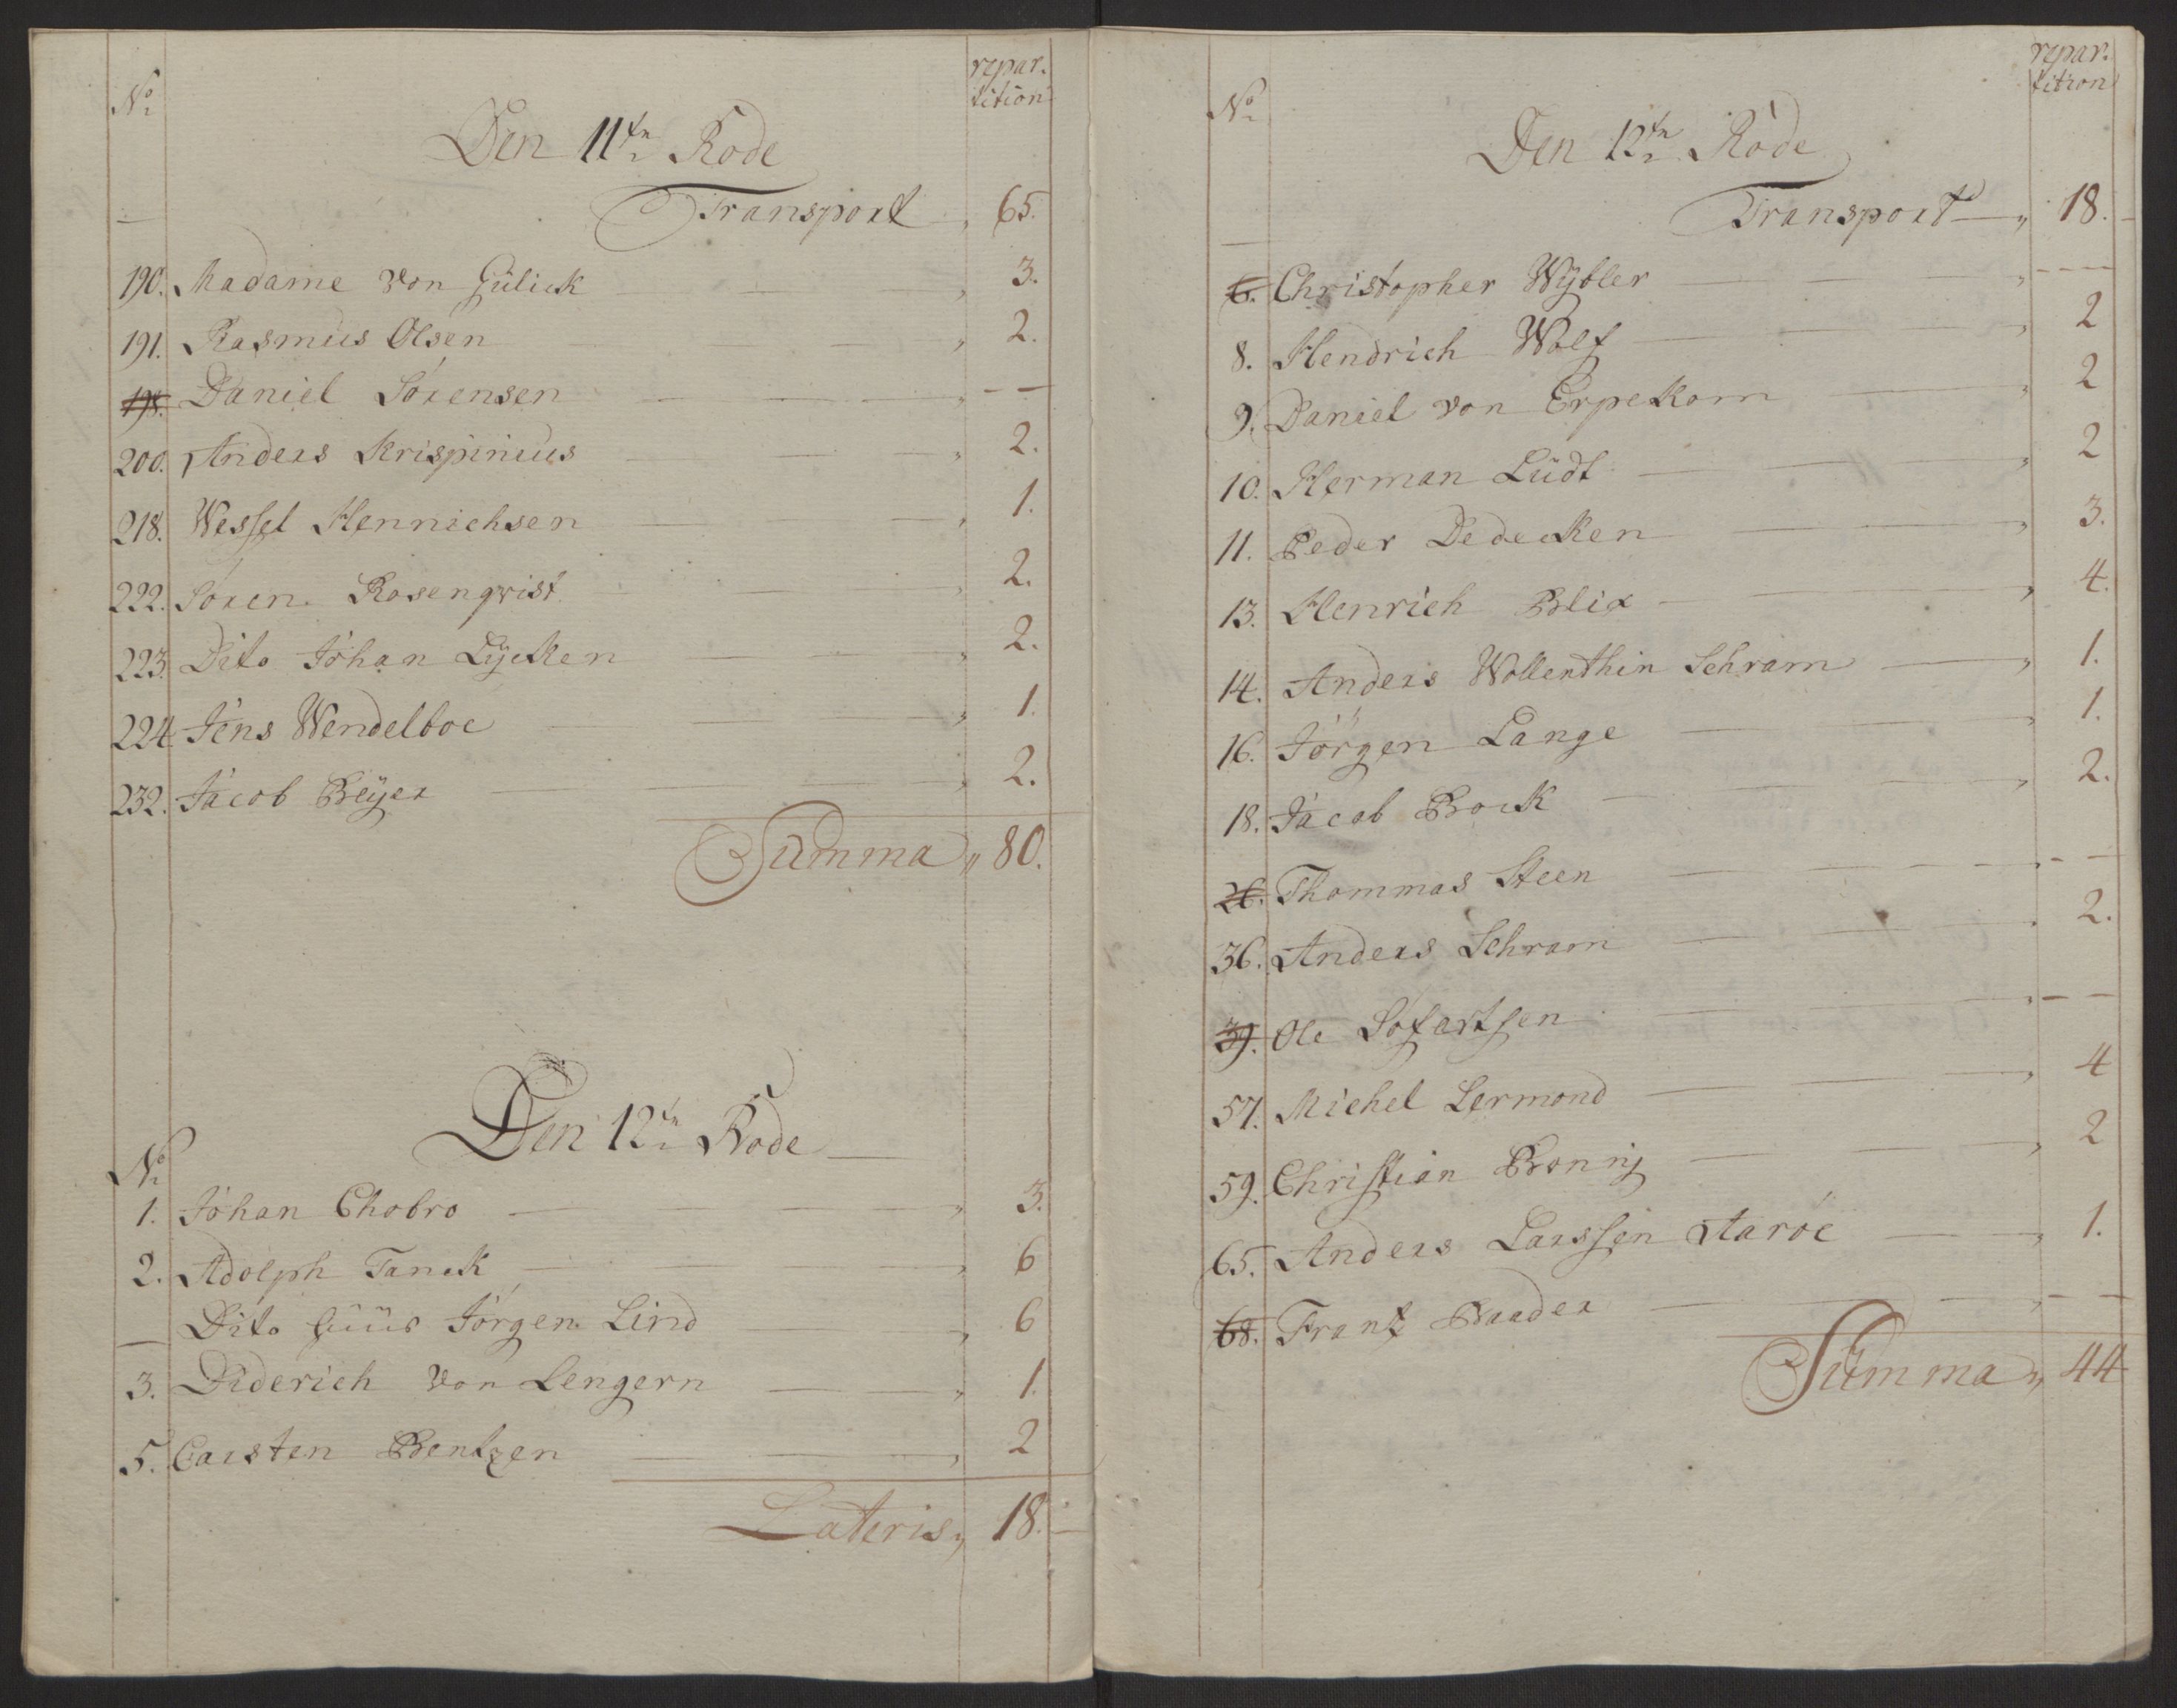 No
repar.
tition
Den 11tn Rode
Transport „ 65.
190. Madame von Gülick „ 3.
191. Rasmus Olsen „ 2.
198. Daniel Sörensen „ — —
200. Anders Krispinius „ 2.
218. Wessel Hennichsen „ 1.
222. Sören Rosenqvist „ 2.
223. Dito Johan Lÿcken „ 2.
224 Jens Wendelboe „ 1.
232. Jacob Beÿer „ 2.
Summa „ 80.
Den 12tn Rode
No
1. Johan Chobro „ 3.
2. Adolph Tanck „ 6
— Dito Huus Jörgen Lind „ 6
3. Diderich von Lengern „ 1.
5. Carsten Bentzen „ 2
Lateris „ 18.
No
repar.
tition
Den 12tn Rode
Transport „ 18.
6. Christopher Wÿbler „ — — —
8. Hendrich Wolf „ 2
9. Daniel von Erpekom „ 2
10. Herman Lüdt „ 2
11. Peder Dedecken „ 3.
13. Henrich Blix „ 4.
14. Anders Wollenthin Schram „ 1.
16. Jörgen Lange „ 1.
18. Jacob Bock „ 2.
26. Thommas Steen „ — —
36. Anders Schram „ 2.
39. Ole Sofartsen „ — —
57. Michel Lermond „ 4
59. Christian Bonnig „ 2
65. Anders Larssen Aaroe „ 1.
68. Frantz Baader „ — —
Summa „ 44